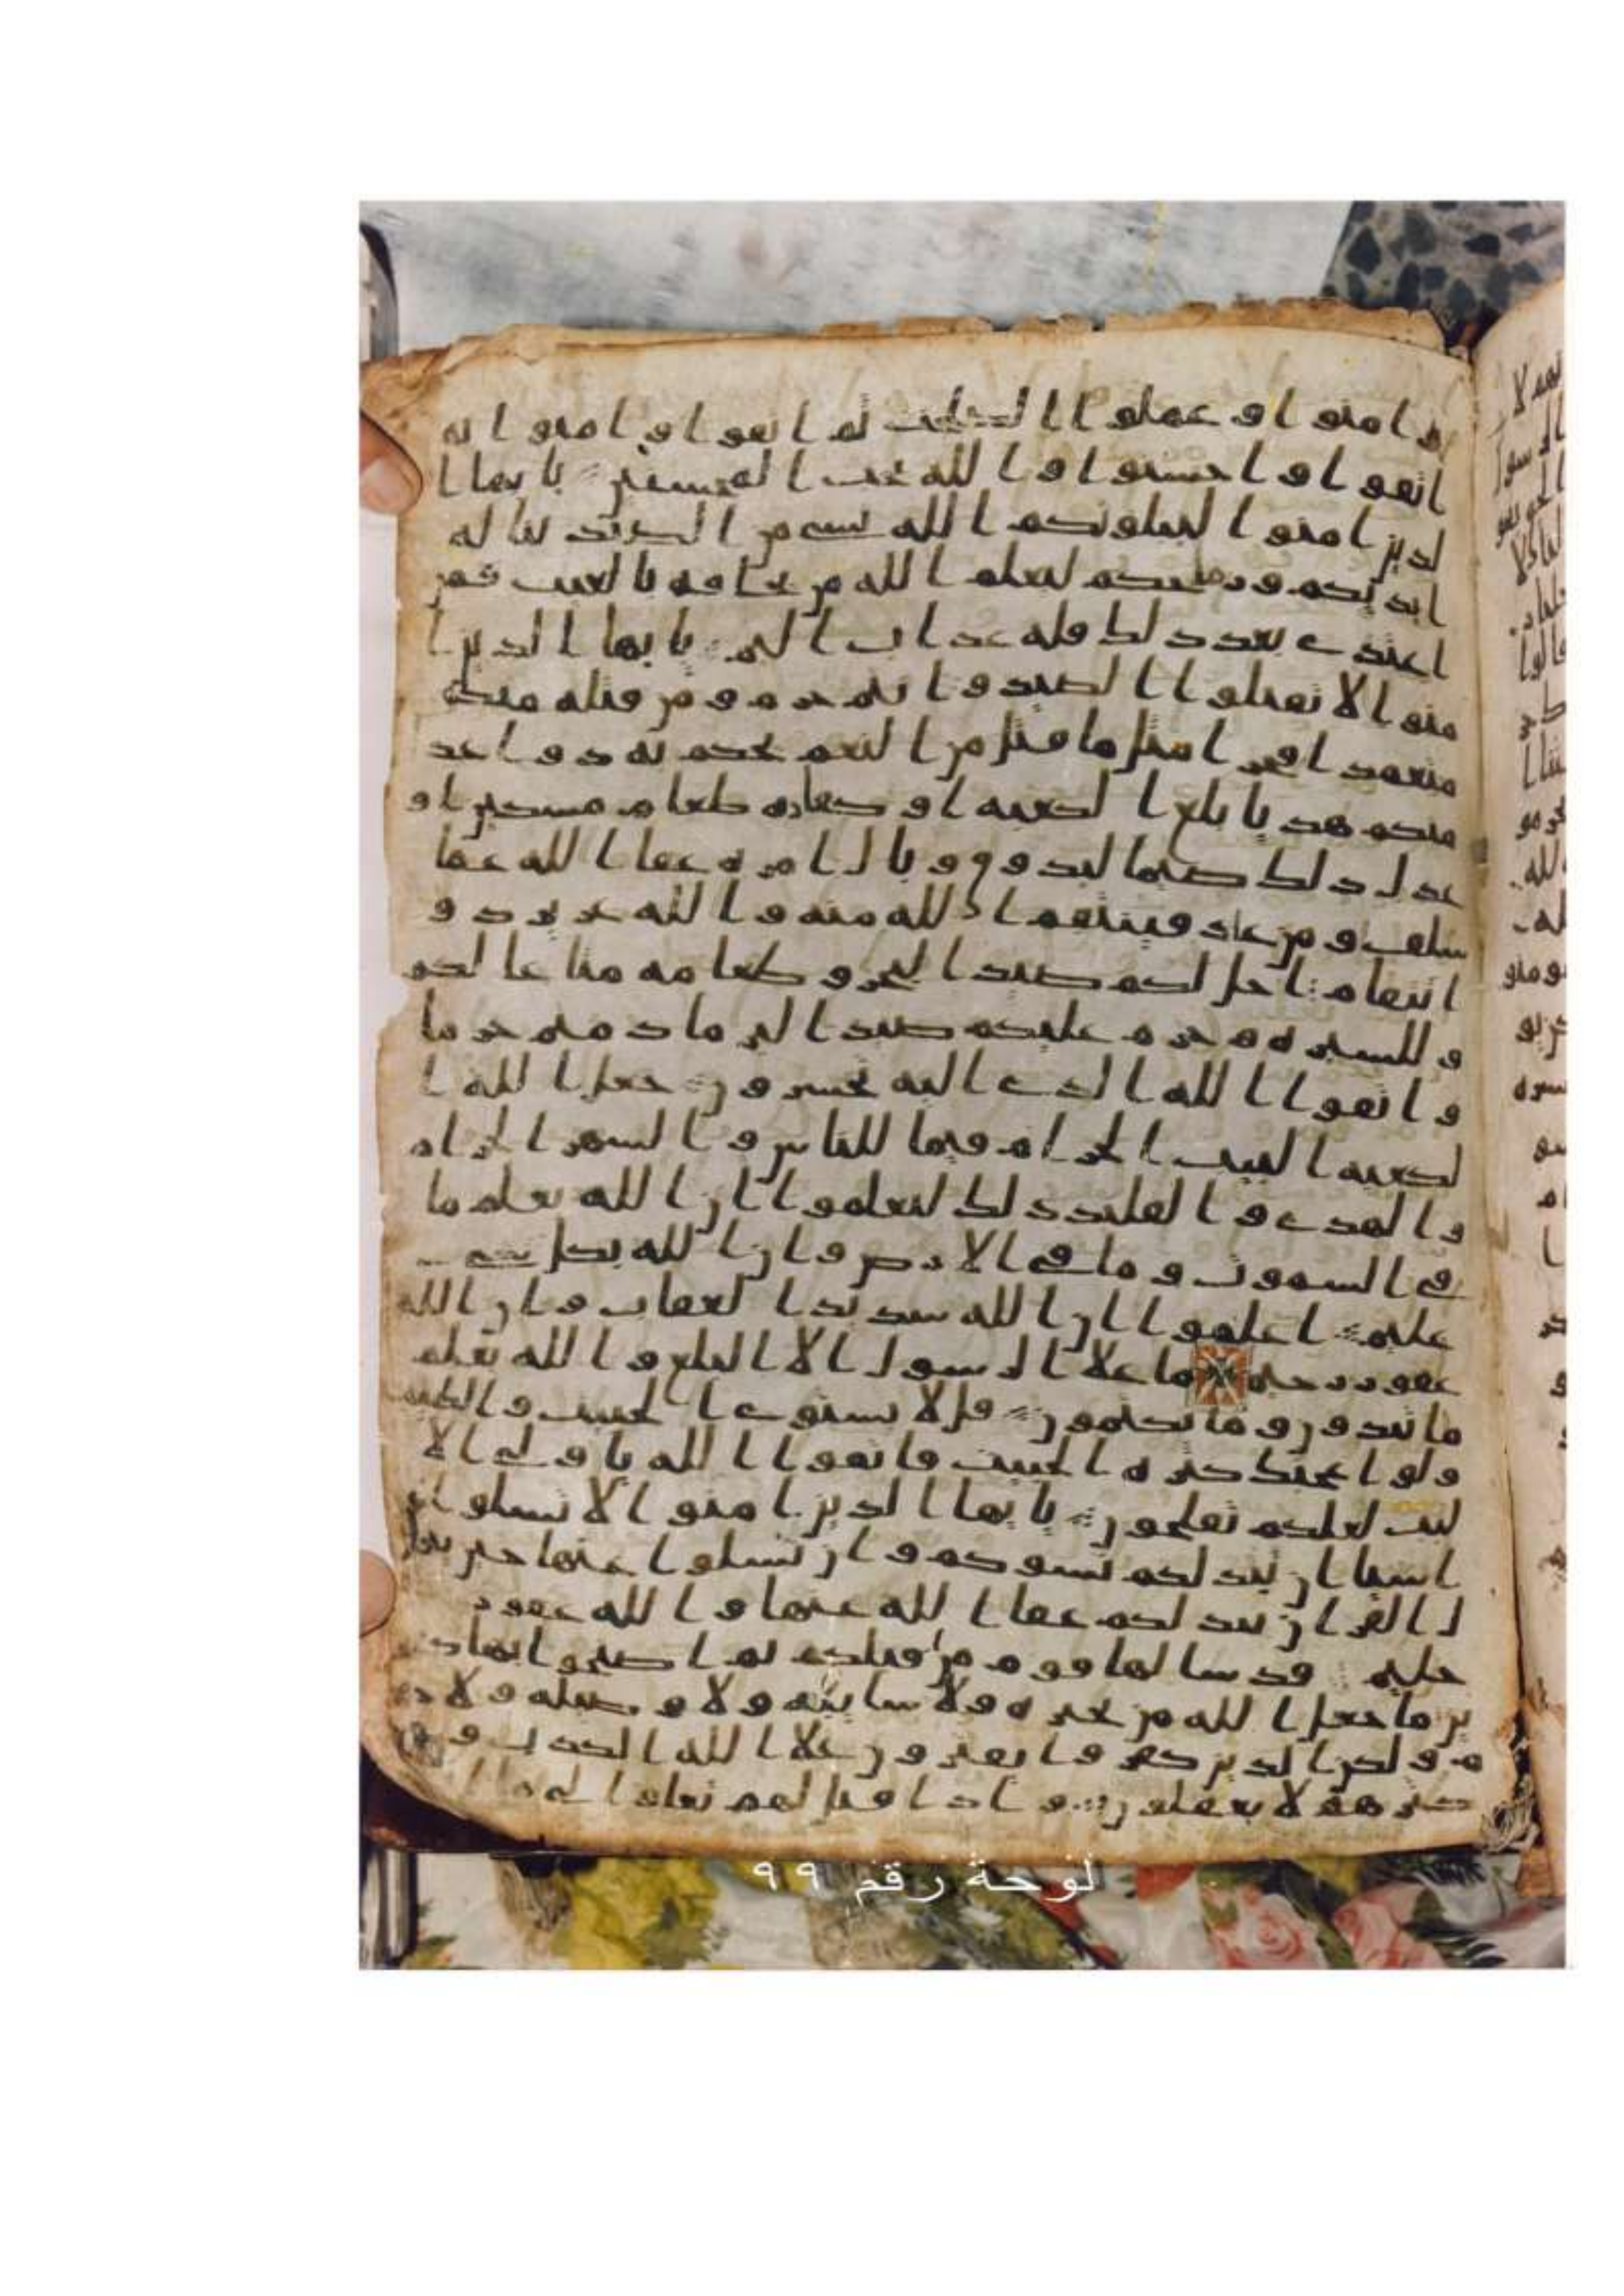 و امنوا و عملوا الصلحت ثم اتقوا و امنوا ثم
اتقوا و احسنوا و الله يحب المحسنين يايها ا
لذين امنوا ليبلونكم الله بشي من الصيد تناله
ايديكم ورمحكم ليعلم الله من يخافه بالغيب فمن
اعتدى بعد ذلك فله عذاب اليم يايها الذين ا
منوا لا تقتلوا الصيد و انتم حرم و من قتله منكم
متعمدا فجزا مثل ما قتل من النعم يحكم به ذوا عد
منكم هديا بلغ الكعبه او كفاره طعام مسكين او
عدل ذلك صيما ليذوق وبال امره عفا الله عما
سلف و من عاد فينتقم الله منه و الله عزيز ذو
انتقام احل لكم صيد البحر و طعامه متاعا لكم
و للسيره و حرم عليكم صيد البر ما دمتم حرما
و اتقوا الله الذي اليه تحشرون جعل الله ا
لكعبه البيت الحرام قيما للناس و الشهر الحرام
و الهدي و القلئد ذلك لتعلموا ان الله يعلم ما
في السموت و ما في الارض و ان الله بكل شي
عليم اعلموا ان الله شديد العقاب و ان الله
غفور رحيم ما علا الرسول الا البلغ و الله يعلم
ما تبدون و ما تكتمون قل لا يستوي الخبيث و الطيب
ولو اعجبك كثره الخبيث فاتقوا الله ياولي الا
لبب لعلكم تفلحون يايها الذين امنوا لا تسلوا عن
اشيا ان تبد لكم تسوكم و ان تسلوا عنها حين ينز
ل القرن تبد لكم عفا الله عنها و الله غفور
حليم قد سالها قوم من قبلكم ثم اصبحوا بها كفر
ين ما جعل الله من بحيره ولا سايبه ولا وصيله ولا حا
م و لكن الذين كفروا يفترون علا الله الكذب و
كثرهم لا يعقلون و اذا قيل لهم تعالوا الى ما ا
لوحة رقم ٩٩